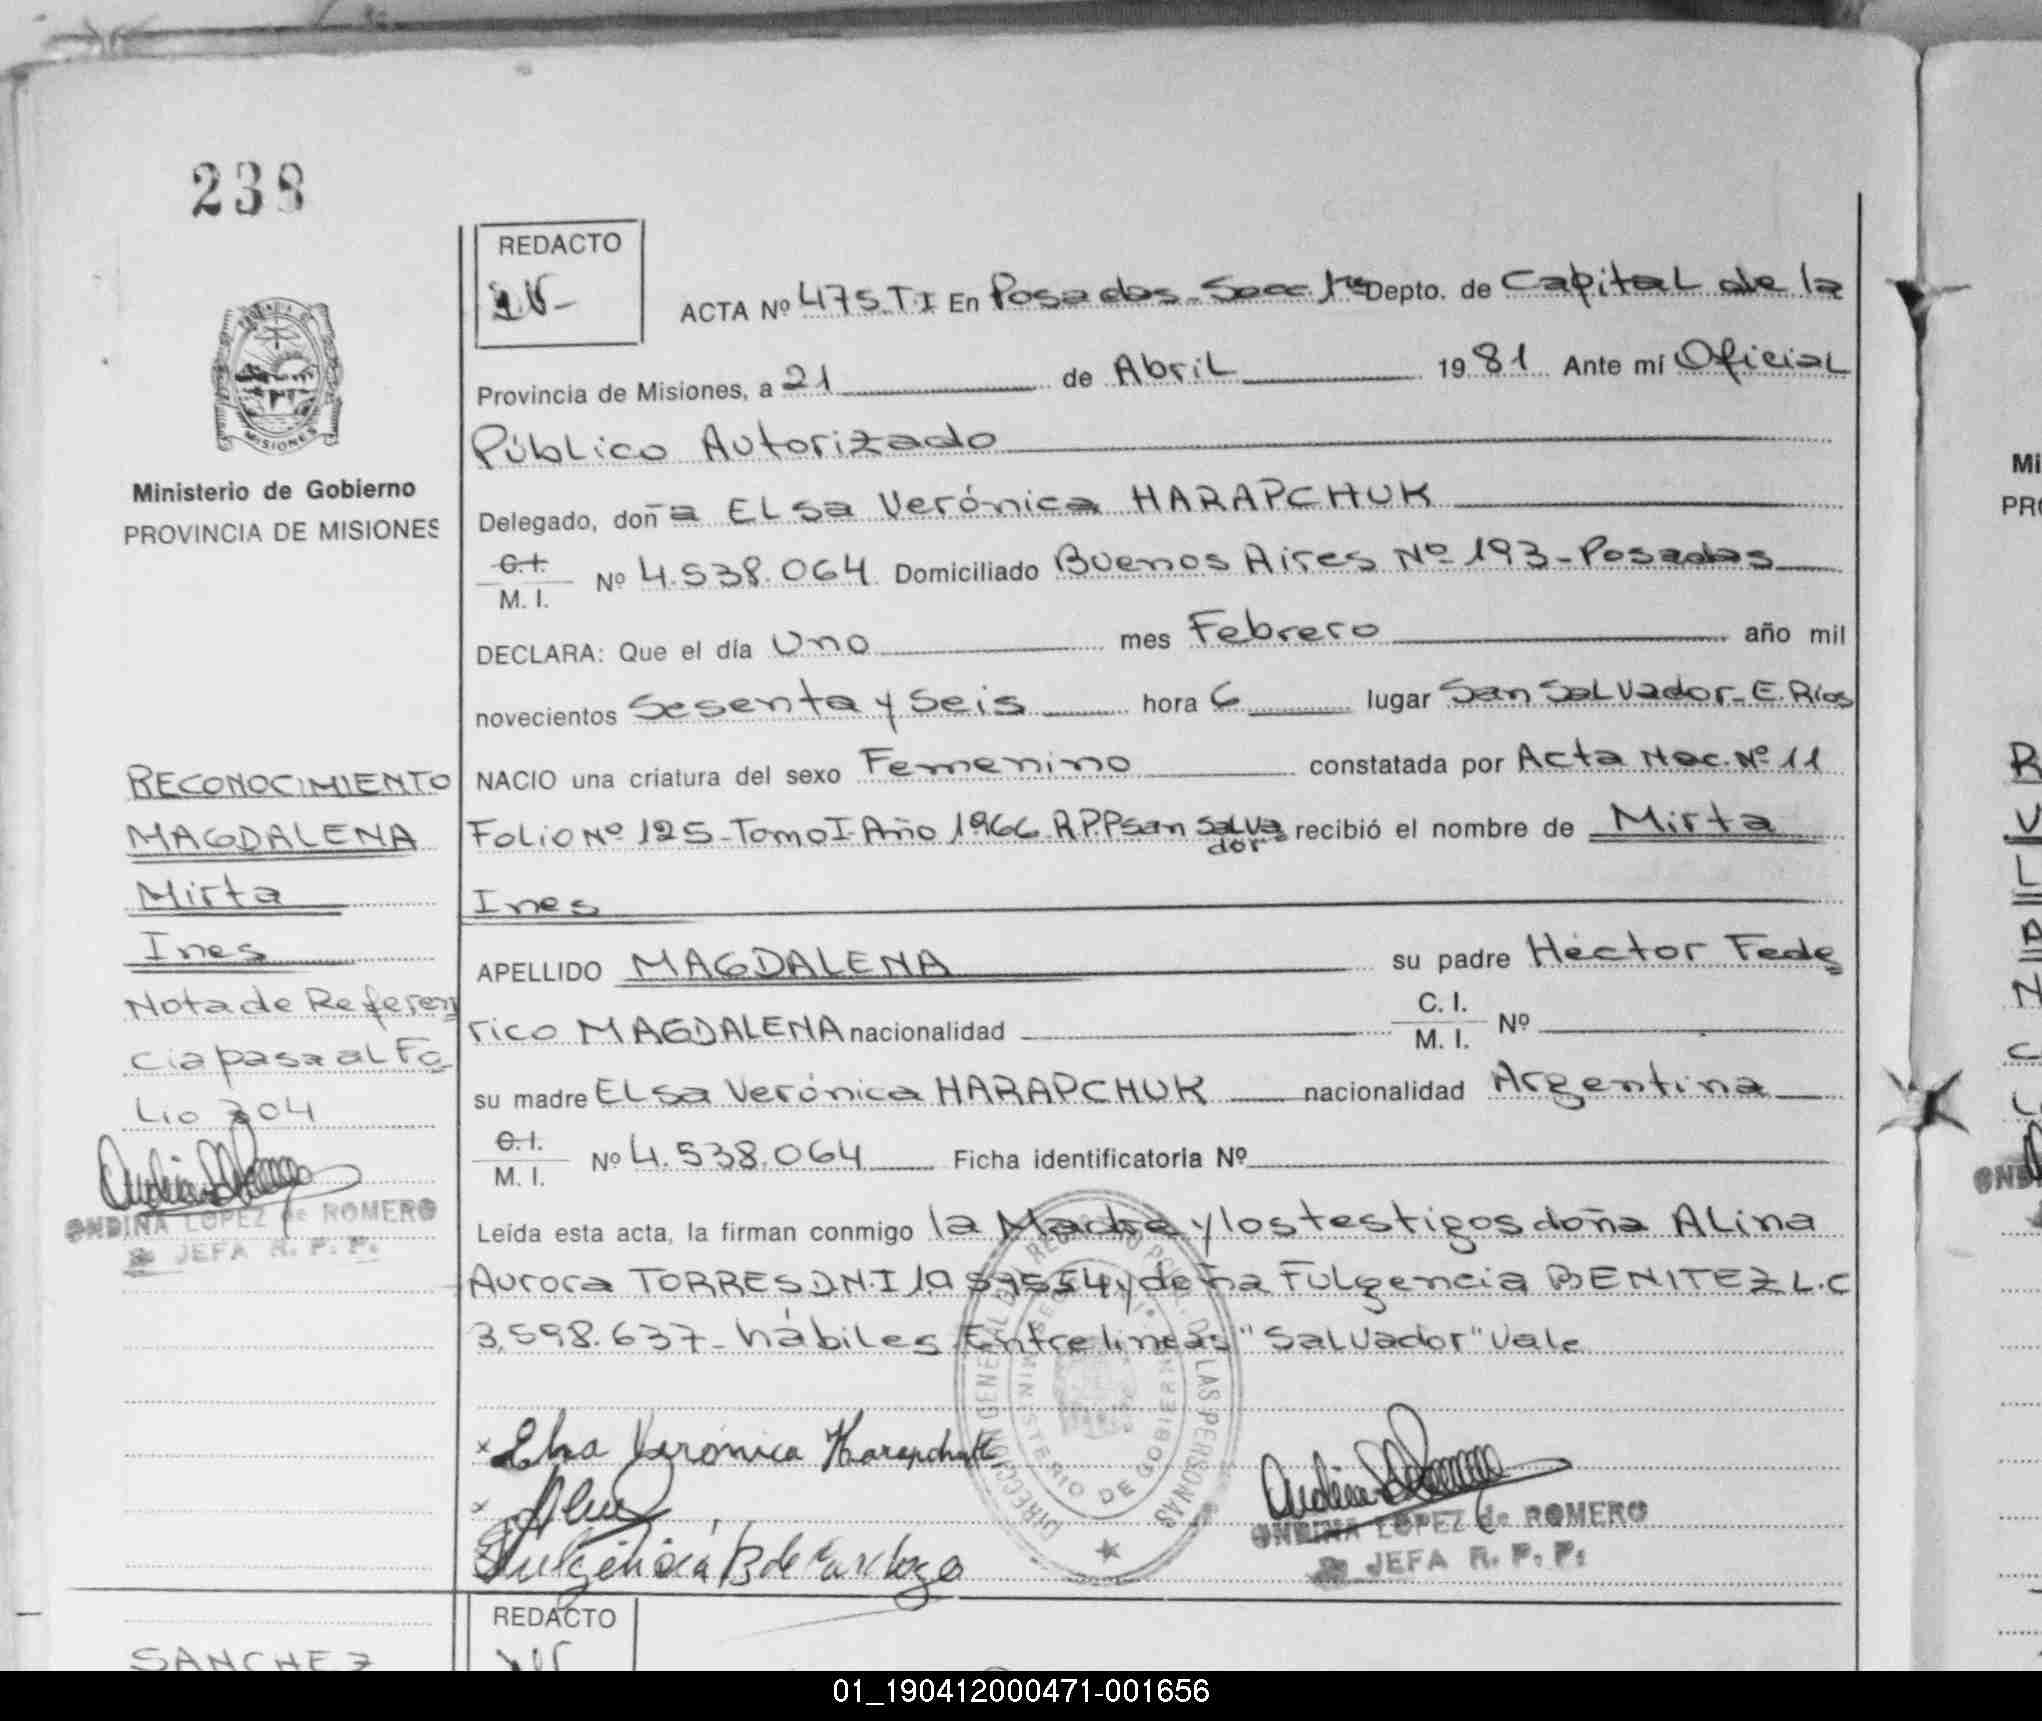 238
REDACTO
ACTA Nº 475.T.I En Posadas-Secc 1ra Depto. de Capital de la
Provincia de Misiones, a 21 de Abril 1981 Ante mí Oficial
Público Autorizado
Ministerio de Gobierno
PROVINCIA DE MISIONES
Delegado, doña ELsa Verónica HARAPCHUK
C.I.
M. I. Nº 4.538.064 Domiciliado Buenos Aires Nº 193-Posadas
DECLARA: Que el día Uno mes Febrero año mil
novecientos Sesenta y Seis hora 6 lugar San SaLvador-E.Ríos
NACIO una criatura del sexo Femenino constatada por Acta Nac. Nº 11
Folio Nº 125-Tomo I-Año 1966 R.P.P San Salva recibió el nombre de Mirta
dor
Ines
APELLIDO MAGDALENA su padre Héctor Fede
rico MAGDALENA nacionalidad C. I.
M. I. Nº
su madre ELsa Verónica HARAPCHUK nacionalidad Argentina
C.I.
M. I. Nº 4.538.064 Ficha identificatoria Nº
Leída esta acta, la firman conmigo la Madre y los testigos doña ALina
Aurora TORRES D.N.I y doña Fulgencia BENITEZ L.C
3.598.637- hábiles. Entrelineas "Salvador" Vale
RECONOCIMIENTO
MAGDALENA
Mirta
Ines
Nota de Referen
cia pasa al Fo
Lio 304
ONDINA LOPEZ de ROMERO
JEFA R. P. P.
DIRECCION GENERAL DEL REGISTRO PCIAL. DE LAS PERSONAS
MINISTERIO DE GOBIERNO
x Elsa Verónica Harapchuk
x
Fulgencia B de Cardozo
ONDINA LOPEZ de ROMERO
JEFA R. P. P.
REDACTO
SANCHEZ
Mi
01_190412000471-001656